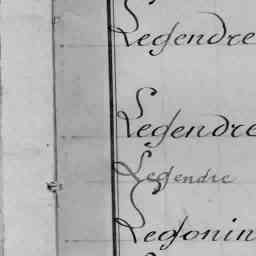 Legendre
Legendre
Legendre
Legonin